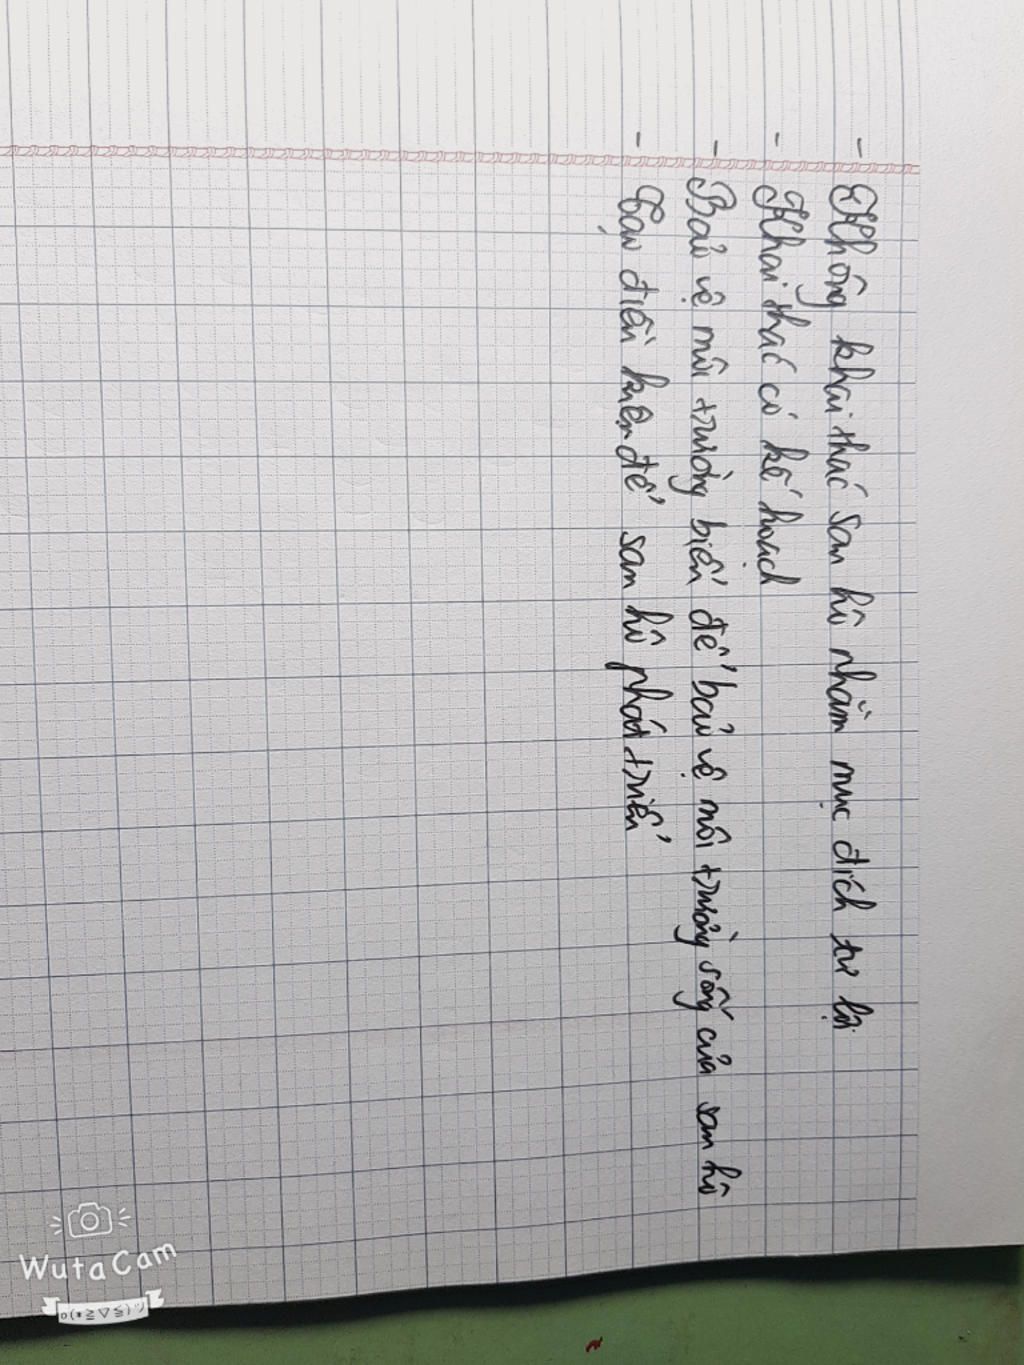 - Không khai thác san hô nhằm mục đích tư lợi
- Khai thác có kế hoạch
- Bảo vệ môi trường biển để bảo vệ môi trường sống của san hô
- Tạo điều kiện để san hô phát triển
WutaCam